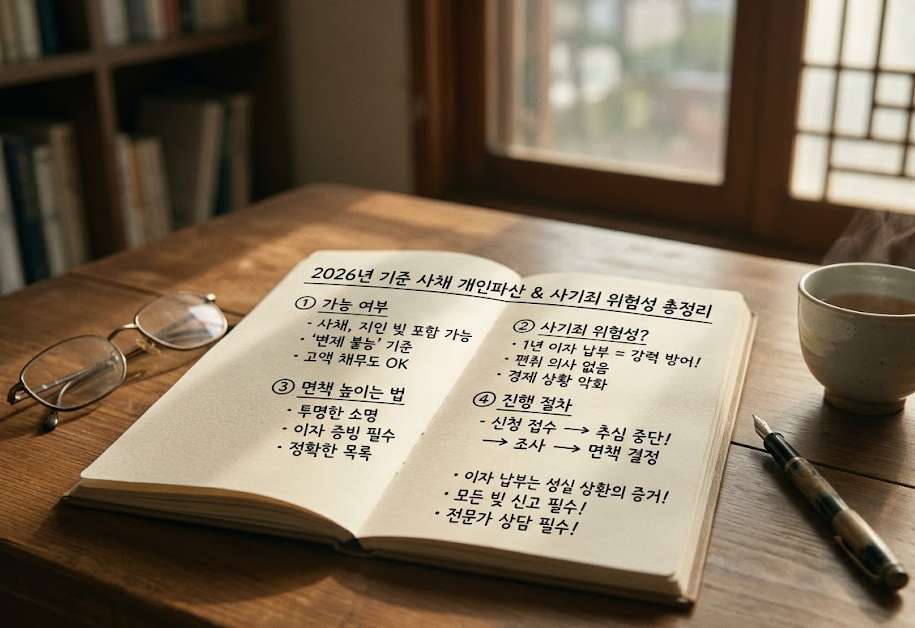 2026년 기준 사채 개인파산 & 사기죄 위험성 총정리
① 가능 여부
- 사채, 지인 빚 포함 가능
• '변제 불능' 기준
- 고액 채무도 OK
③ 면책 높이는 법
• 투명한 소명
• 이자 증빙 필수
- 정확한 목록
② 사기죄 위험성?
• 1년 이자 납부 = 강력 방어!
• 편취 의사 없음
• 경제 상황 악화
④ 진행 절차
- 신청 접수 → 추심 중단!
→ 조사 → 면책 결정
• 이자 납부는 성실 상환의 증거!
• 모든 빚 신고 필수!
• 전문가 상담 필수!